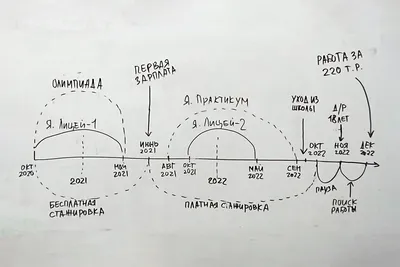 РАБОТА ЗА
220 Т.Р.
ПЕРВАЯ
ЗАРПЛАТА
ОЛИМПИАДА
Я. ПРАКТИКУМ
УХОД ИЗ
ШКОЛЫ
Д/Р
18 ЛЕТ
Я. ЛИЦЕЙ-1
Я. ЛИЦЕЙ-2
ОКТ
2020
2021
МАЙ
2021
ИЮНЬ
2021
АВГ
2021
ОКТ
2021
2022
МАЙ
2022
СЕН
2022
ОКТ
2022
НОЯ
2022
ДЕК
2022
ПАУЗА
ПОИСК
РАБОТЫ
БЕСПЛАТНАЯ
СТАЖИРОВКА
ПЛАТНАЯ СТАЖИРОВКА